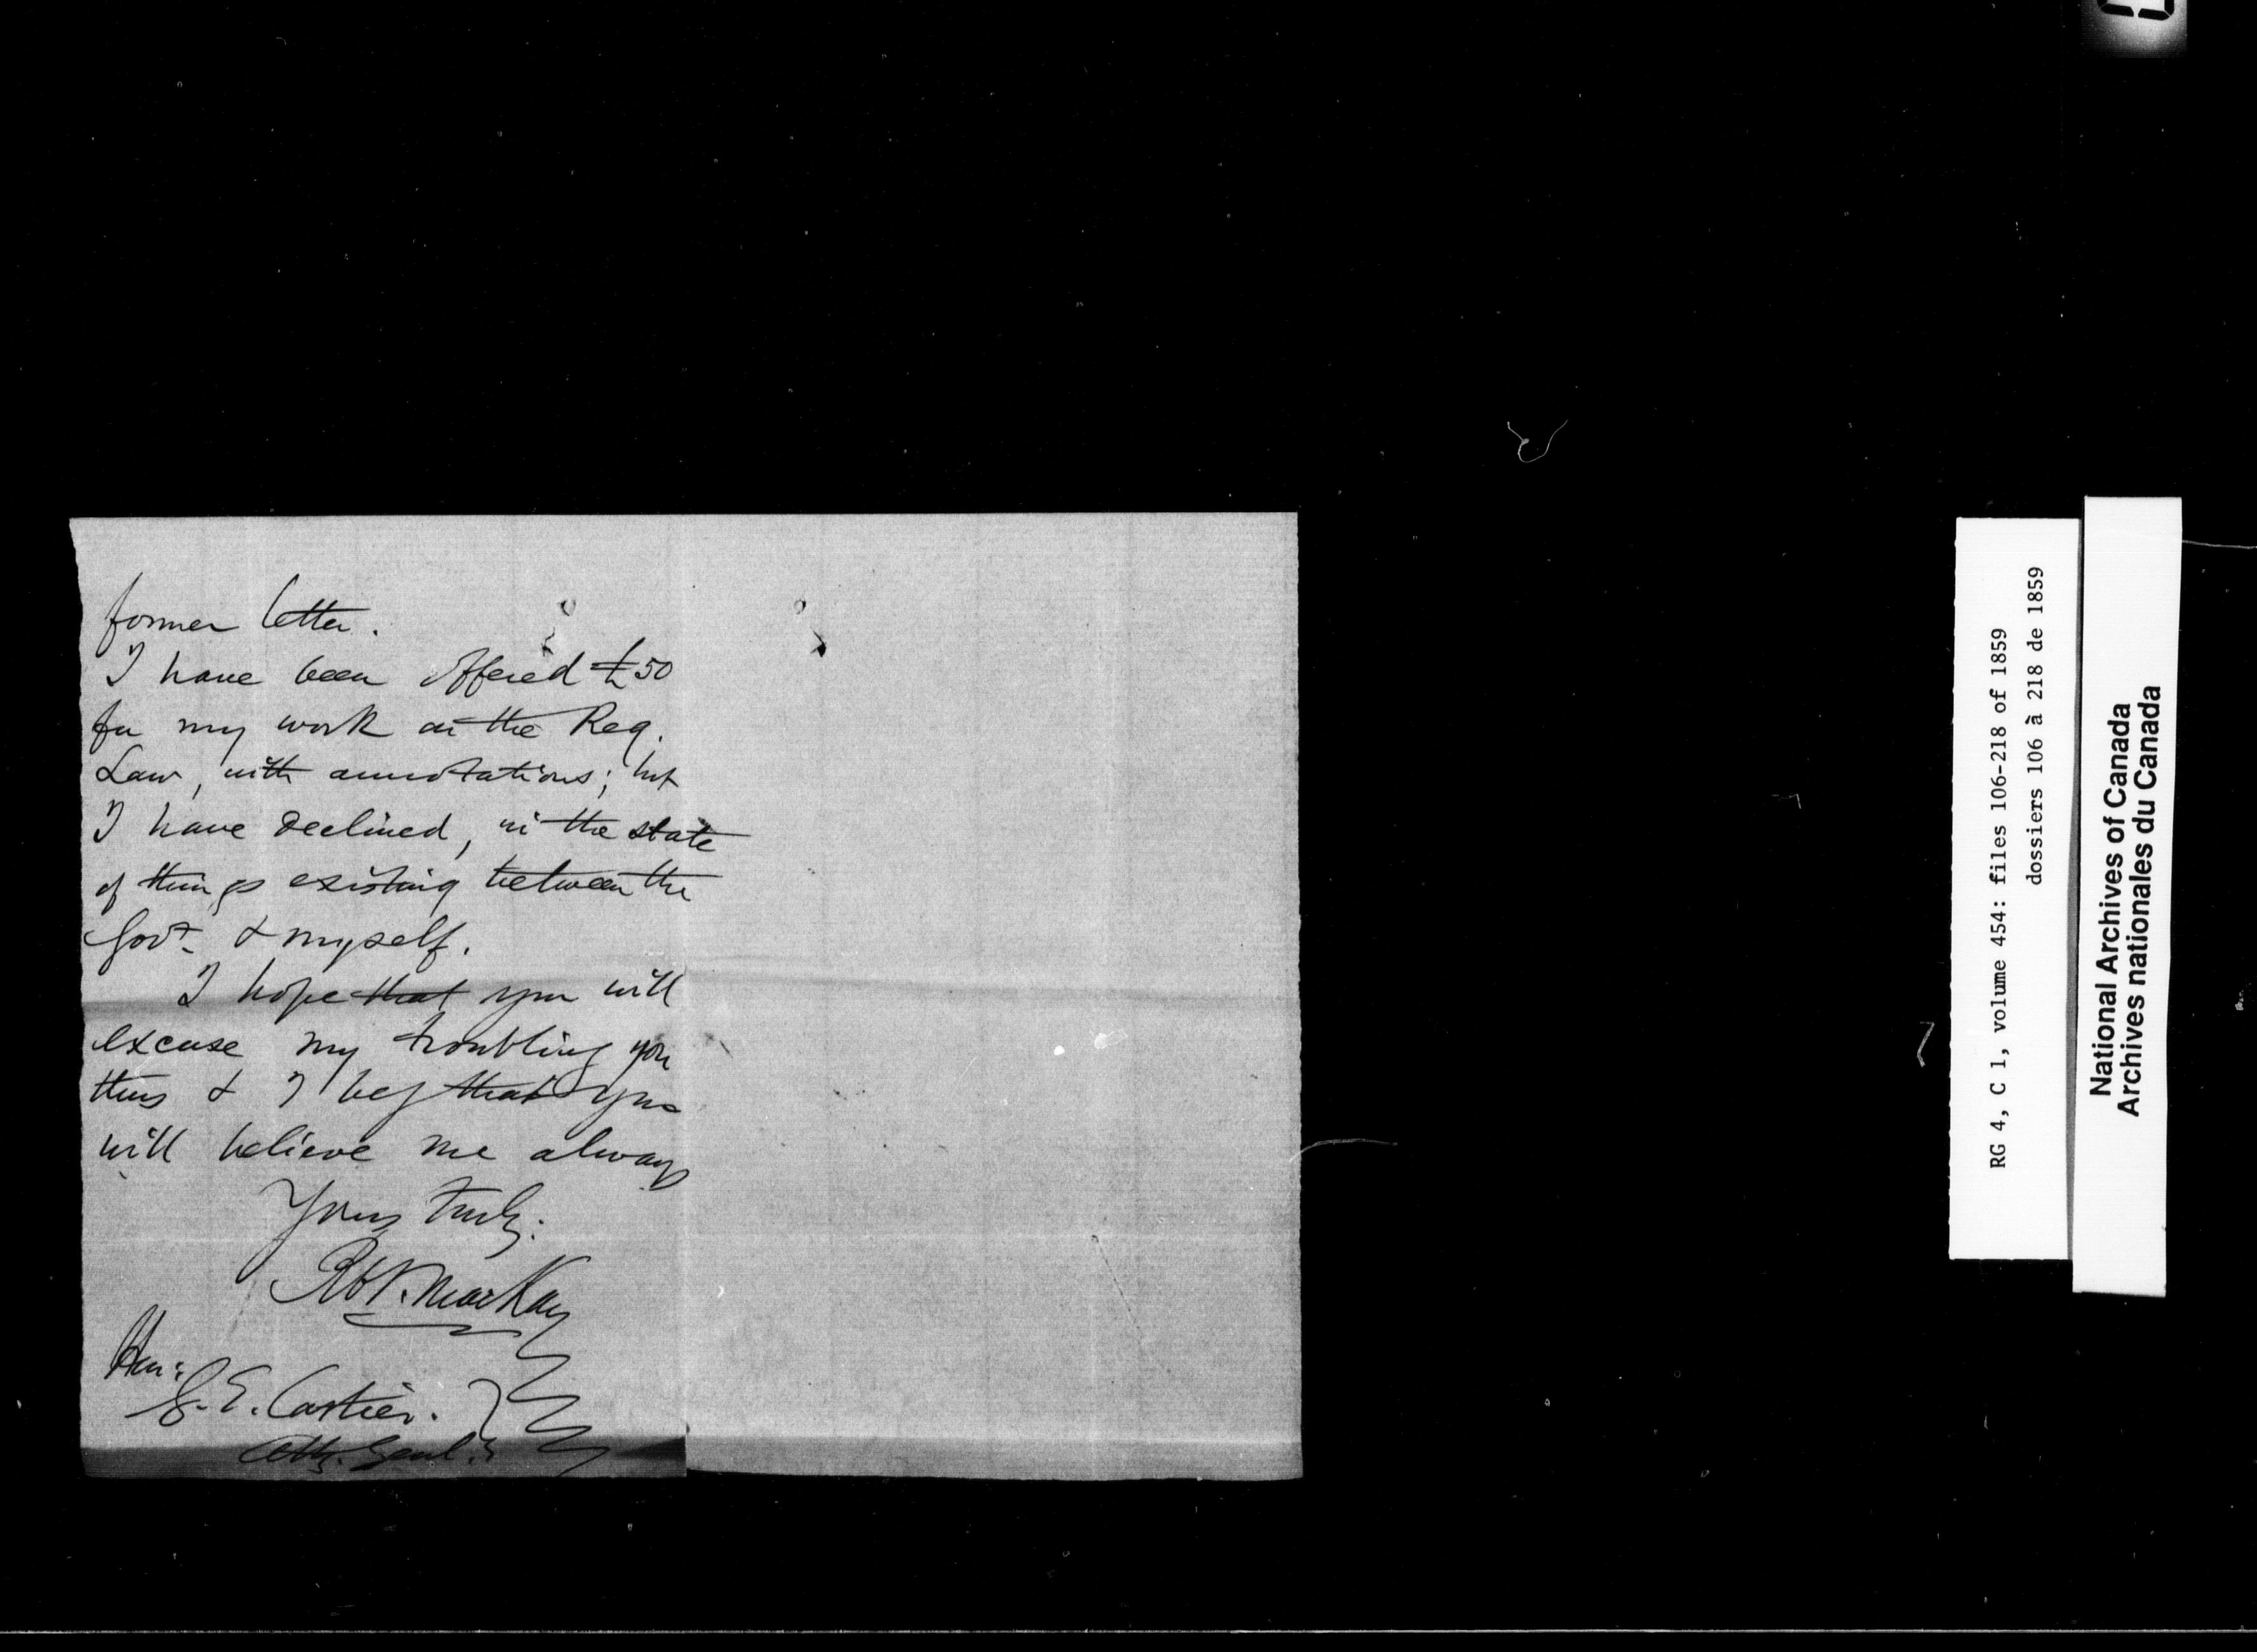 former letter.
I have been offered £50
for my work on the Reg.
Law, with annotations; but
I have declined, in the state
of things existing between the
Govt. & myself.
I hope that you will
excuse my troubling you
thus & I beg that you
will believe me always
Yours truly.
Rbt. MacKay
Hon:
G. E. Cartier.
Atty. Genl.
RG 4, C 1, volume 454: files 106-218 of 1859
dossiers 106 à 218 de 1859
National Archives of Canada
Archives nationales du Canada